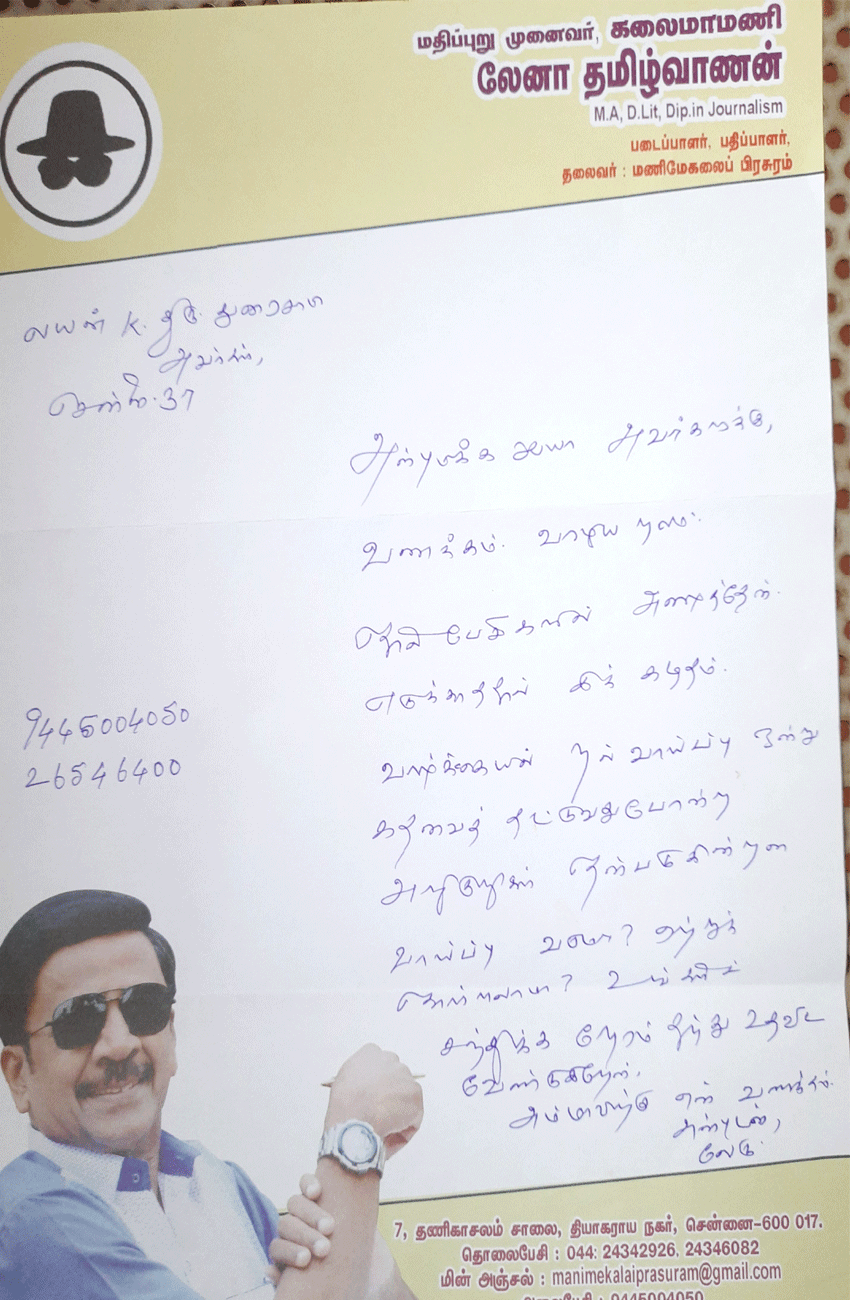 மதிப்புறு முனைவர், கலைமாமணி
லேனா தமிழ்வாணன்
M.A, D.Lit, Dip.in Journalism
படைப்பாளர், பதிப்பாளர்,
தலைவர் : மணிமேகலைப் பிரசுரம்
லயன் K. திரு. துரைசாமி
அவர்கள்,
சென்னை.37
அன்புமிக்க ஐயா அவர்களுக்கு,
வணக்கம். வாழிய நலம்.
தொலைபேசிகளில் அழைத்தேன்.
எடுக்காததால் இக் கடிதம்.
9445004050
26546400
வாழ்க்கையில் நல் வாய்ப்பு ஒன்று
கதவைத் தட்டுவதுபோன்ற
அறிகுறிகள் தென்படுகின்றன
வாய்ப்பு வருமா? ஏற்றுக்
கொள்ளலாமா? உங்களைச்
சந்திக்க நேரம் தந்து உதவிட
வேண்டுகிறேன்.
அம்மாவிற்கு என் வணக்கம்.
அன்புடன்,
7, தணிகாசலம் சாலை, தியாகராய நகர், சென்னை-600 017.
தொலைபேசி : 044: 24342926. 24346082
மின் அஞ்சல் : manimekalaiprasuram@gmail.com
அலைபேசி : 9445004050